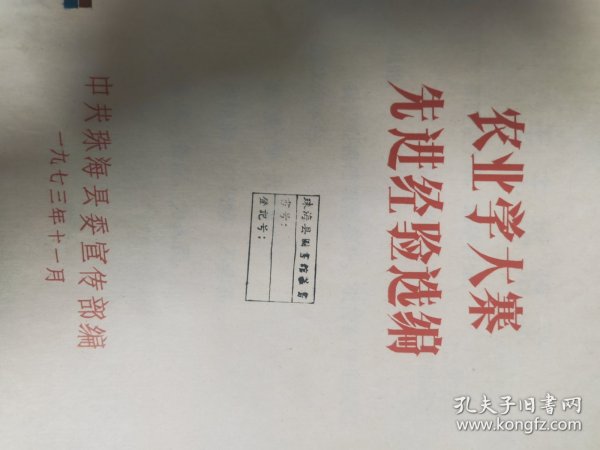 农业学大寨
先进经验选编
珠海县图书馆藏书
书号：
登记号：
中共珠海县委宣传部编
一九七三年十一月
孔夫子旧书网
www.kongfz.com